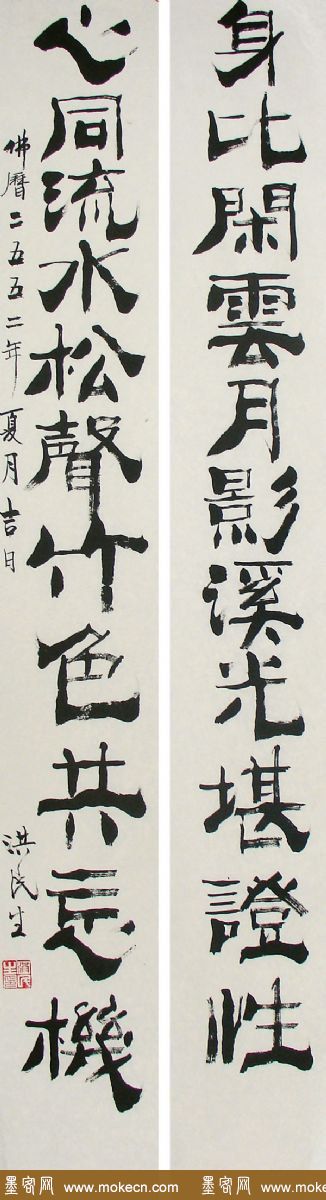 身比閑雲月影溪光堪證性
心同流水松聲竹色共忘機
佛曆二五五二年夏月吉日
洪民生
墨客网 www.mokecn.com
墨客网 www.mokecn.com